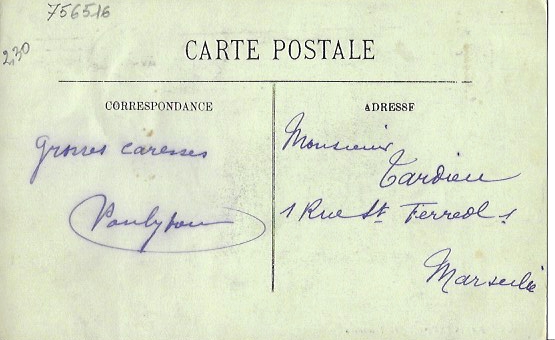 756516
2,30
CARTE POSTALE
CORRESPONDANCE
Grosses caresses
ADRESSE
Monsieur
Tardieu
1 Rue St Ferreol 1
Marseille